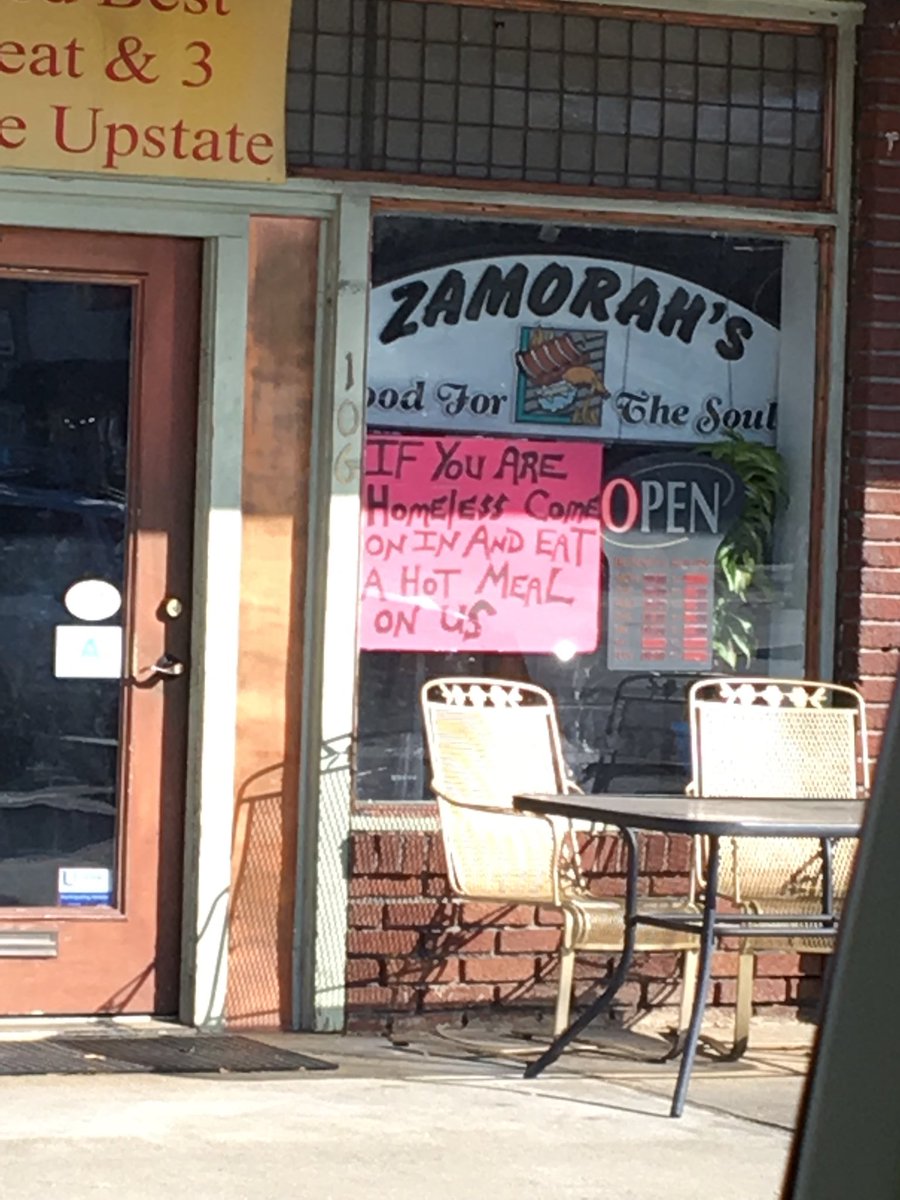 Best
eat & 3
e Upstate
ZAMORAH's
ood For The Soul
106
IF YOU ARE
HomeLess Come
ON IN AND EAT
A HOT MEAL
ON US
OPEN
A